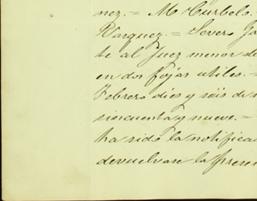 nez.= M Curbelo.
Vazquez.= Severo Ja
te al Juez menor de
en dos fojas utiles.=
Febrero dies y seis de
sincuenta y nueve.=
ha sido la notifica
devuelvase la presen